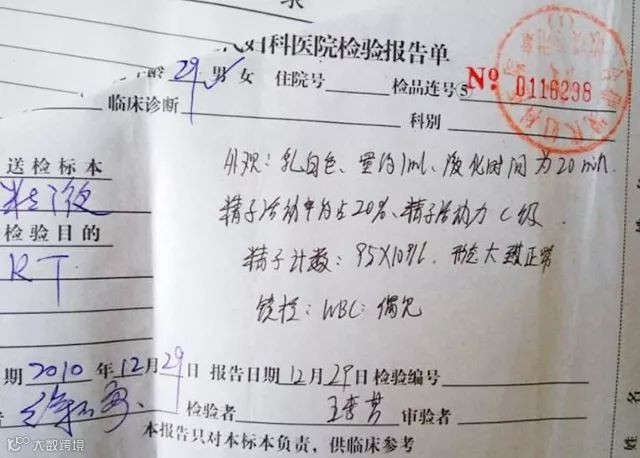 妇科医院检验报告单
年龄 29 男 女 住院号 检品连号5 № 0116298
临床诊断 科别
送检标本
精液
检验目的
RT
外观：乳白色、量约1ml、液化时间为20min.
精子活动率约占20%、精子活动力C级.
精子计数：95X10^9/L 形态大致正常
镜检：WBC：偶见
期 2010 年 12 月 29 日 报告日期 12 月 29 日 检验编号
检验者 审验者
本报告只对本标本负责，供临床参考
姓名
大数跨境